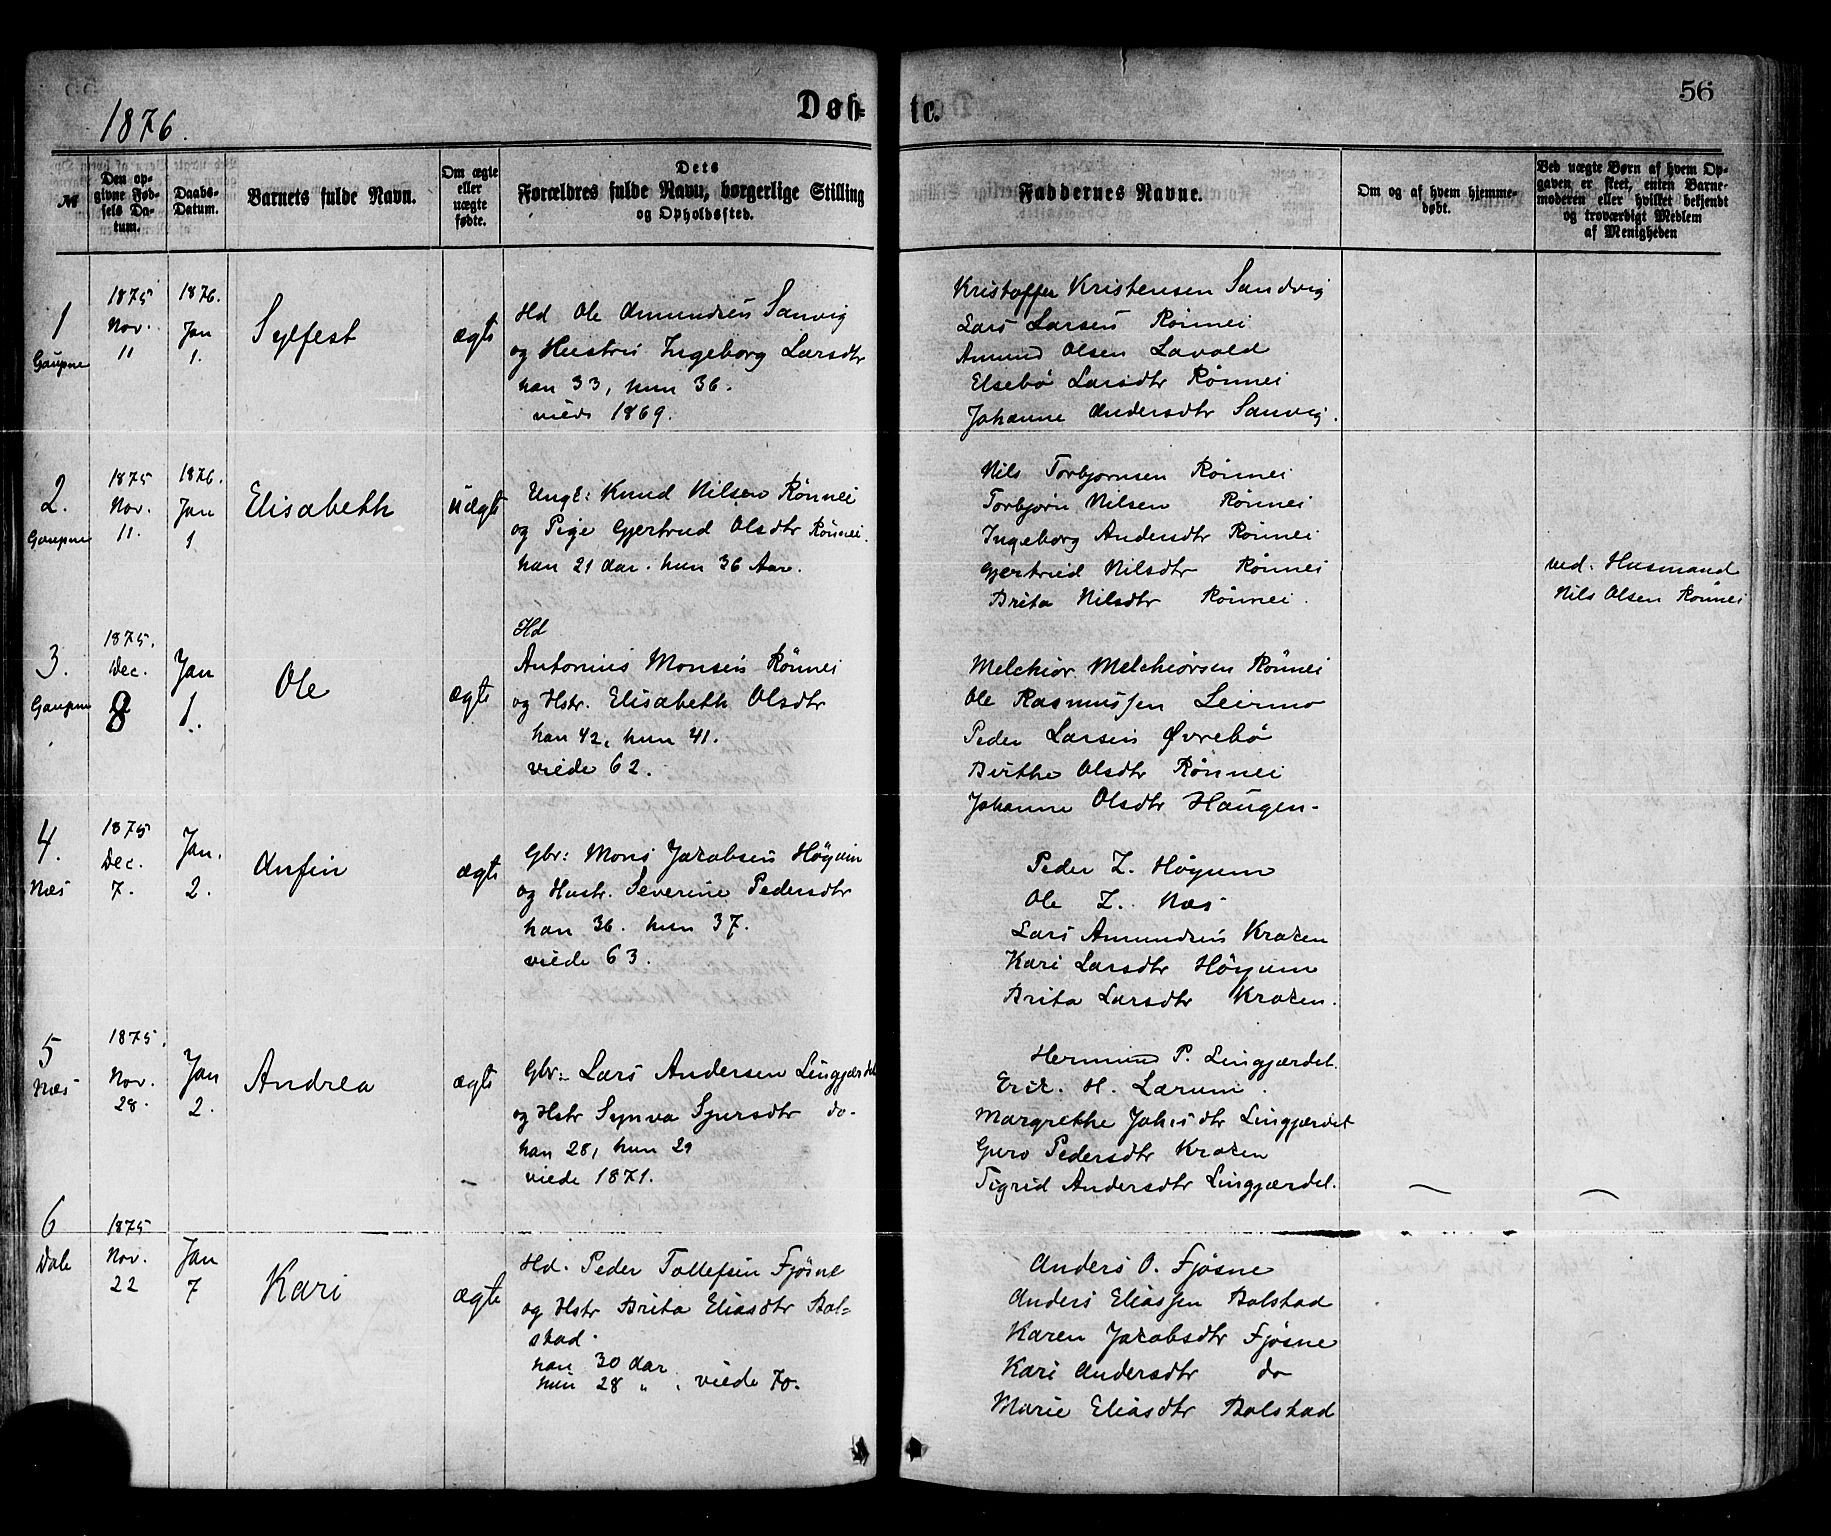 1876.
Døb-
te.
56
№
Den op-
givne Fød-
sels Da-
tum.
Daabs-
Datum.
Barnets fulde Navn.
Om ægte
eller
uægte
fødte.
Dets
Forældres fulde Navn, borgerlige Stilling
og Opholdssted.
Faddernes Navne.
Om og af hvem hjemme-
døbt.
Ved uægte Børn af hvem Op-
gaven er skeet, enten Barne-
moderen eller hvilket bekjendt
og troværdigt Medlem
af Menigheden
1
Gaupne
1875
Nov.
11
1876.
Jan
1.
Sylfest
ægte
Hd Ole Amundsen Sanvig
og Hustru Ingeborg Larsdtr
han 33, hun 36.
viede 1869.
Kristoffer Kristensen Sandvig
Lars Larsen Rønnei
Amund Olsen Lavold
Elsebø Larsdtr Rønnei
Johanne Andersdtr Sanvig.
2.
Gaupne
1875
Nov.
11.
1876.
Jan
1
Elisabeth
uægte
Ungk: Knud Nilsen Rønnei
og Pige Gjertrud Olsdtr Rønnei.
han 21 Aar. hun 36 Aar.
Nils Torbjørnsen Rønnei
Torbjørn Nilsen Rønnei
Ingeborg Andersdtr Rønnei
Gjertrud Nilsdtr Rønnei
Brita Nilsdtr Rønnei.
ved. Husmand
Nils Olsen Rønnei
3.
Gaupne
1875.
Dec.
8
Jan
1.
Ole
ægte
Hd
Antonius Monsen Rønnei
og Hstr. Elisabeth Olsdtr
han 42, hun 41.
viede 62.
Melchior Melchiorsen Rønnei
Ole Rasmussen Leirmo
Peder Larsen Øvrebø
Birthe Olsdtr Rønnei
Johanne Olsdtr Haugen.
4.
Næs
1875
Dec.
7.
Jan.
2.
Anfin
ægte
Gbr: Mons Jacobsen Høyum
og Hustr. Severine Pedersdtr
han 36. hun 37.
viede 63.
Peder L. Høyum
Ole L. Næs
Lars Amundsen Kroken
Kari Larsdtr Høyum
Brita Larsdtr Kroken.
5
Næs
1875.
Nov.
28.
Jan
2.
Andrea
ægte
Gbr: Lars Andersen Lingjærdet
og Hstr Synva Sjursdtr do.
han 28, hun 29
viede 1871.
Hermund P. Lingjærdet.
Erik. H. Lærum.
Margrethe Johsdtr Lingjærdet
Guro Pedersdtr Kroken
Sigrid Andersdtr Lingjærdet.
6
Dale
1875
Nov.
22
Jan
7
Kari
ægte
Hd. Peder Tollefsen Fjøsne
og Hstr Brita Eliasdtr Bol-
stad.
han 30 Aar
hun 28 " , viede 70.
Anders O. Fjøsne
Anders Eliassen Bolstad
Karen Jacobsdtr Fjøsne
Kari Andersdtr do
Marie Eliasdtr Bolstad